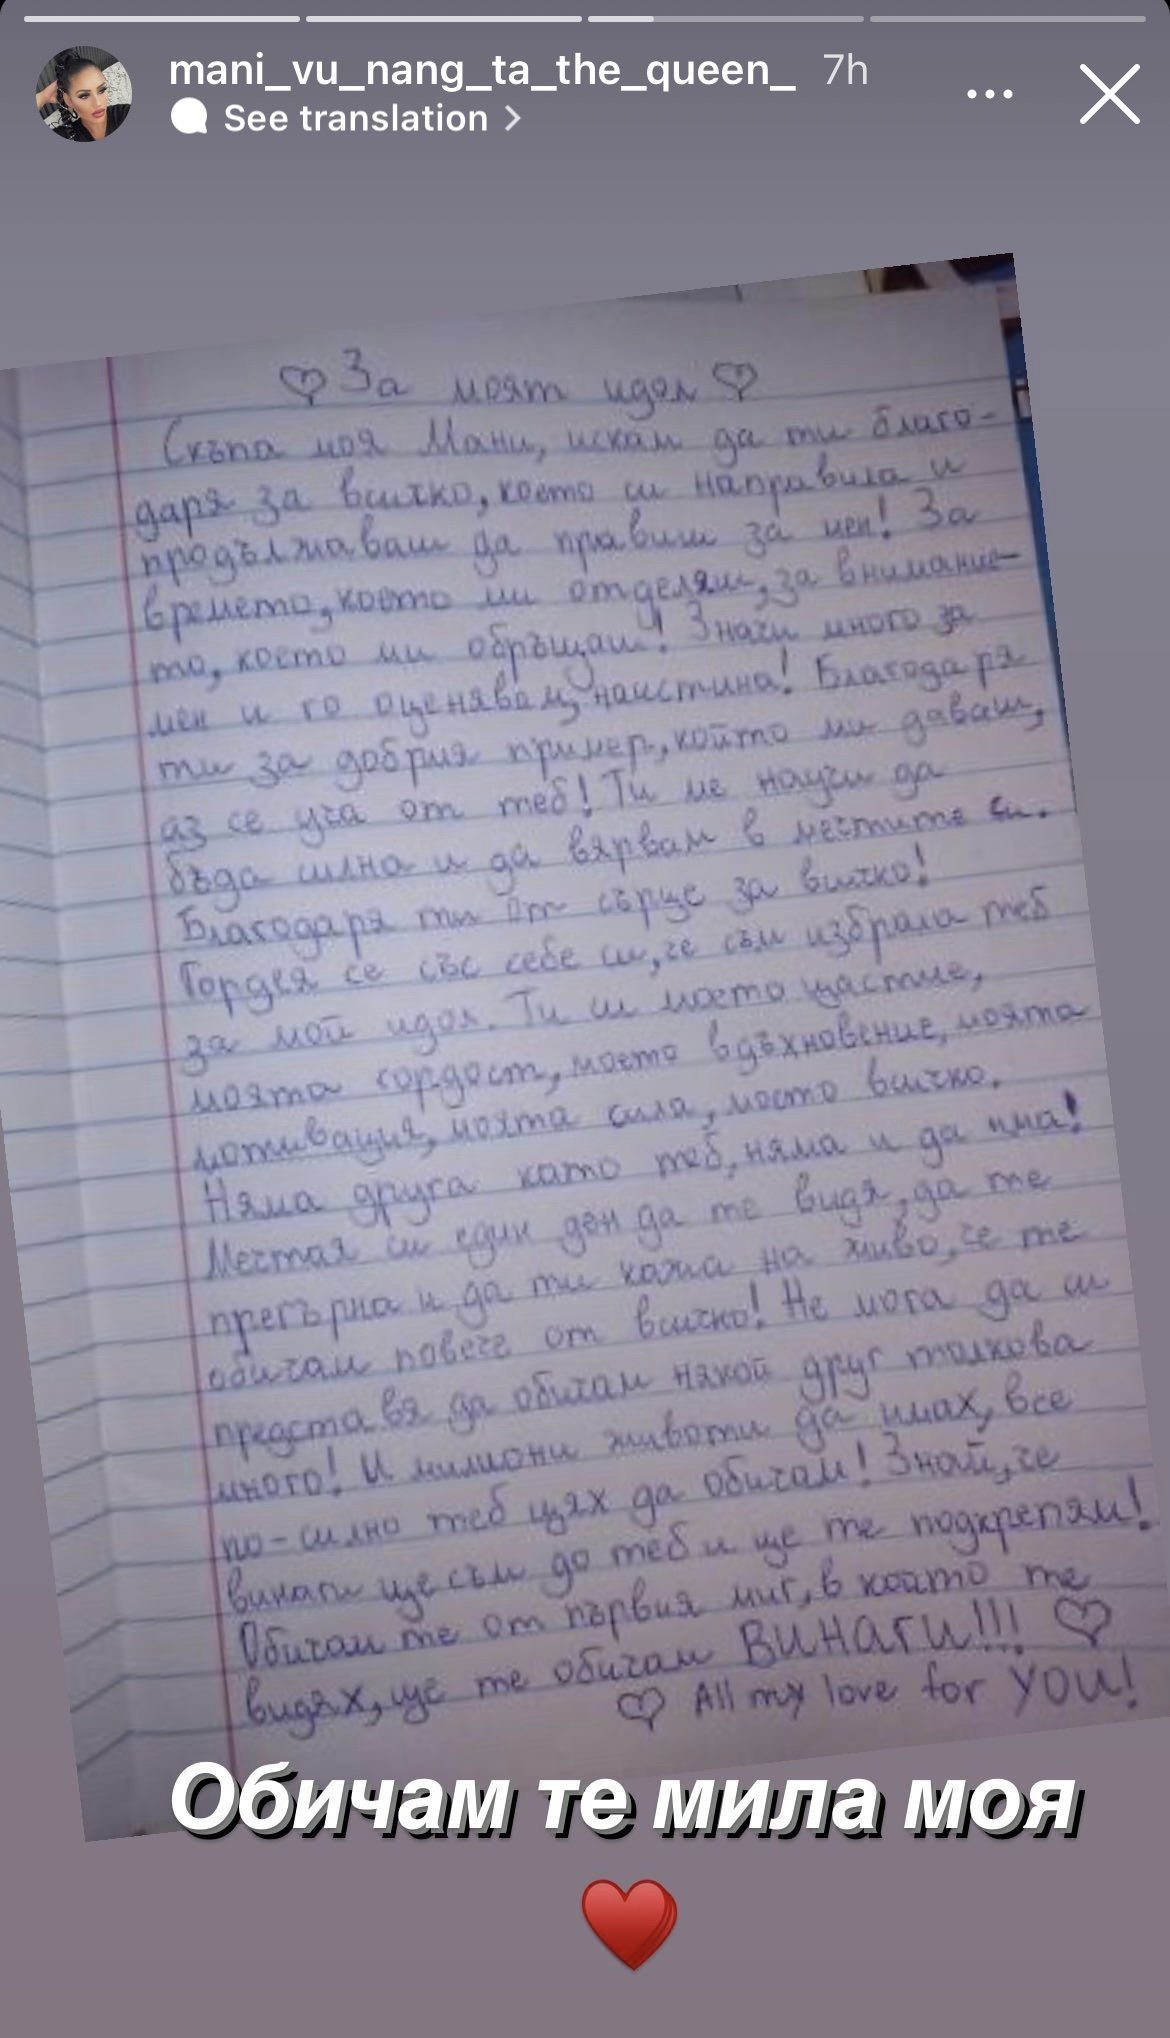 mani_vu_nang_ta_the_queen_ 7h
See translation >
♡ За моят идол ♡
Скъпа моя Мани, искам да ти благо-
даря за всичко, което си направила и
продължаваш да правиш за мен! За
времето, което ми отделяш, за внимание-
то, което ми обръщаш! Значи много за
мен и го оценявам, наистина! Благодаря
ти за добрия пример, който ми даваш,
аз се уча от теб! Ти ме научи да
бъда силна и да вярвам в мечтите си.
Благодаря ти от сърце за всичко!
Гордея се със себе си, че съм избрала теб
за мой идол. Ти си моето щастие,
моята гордост, моето вдъхновение, моята
мотивация, моята сила, моето всичко.
Няма друга като теб, няма и да има!
Мечтая си един ден да те видя, да те
прегърна и да ти кажа на живо, че те
обичам повече от всичко! Не мога да си
представя да обичам някой друг толкова
много! И милиони животи да имах, все
по-силно теб щях да обичам! Знай, че
винаги ще съм до теб и ще те подкрепям!
Обичам те от първия миг, в който те
видях, ще те обичам ВИНАГИ!!! ♡
♡ All my love for YOU!
Обичам те мила моя
❤️